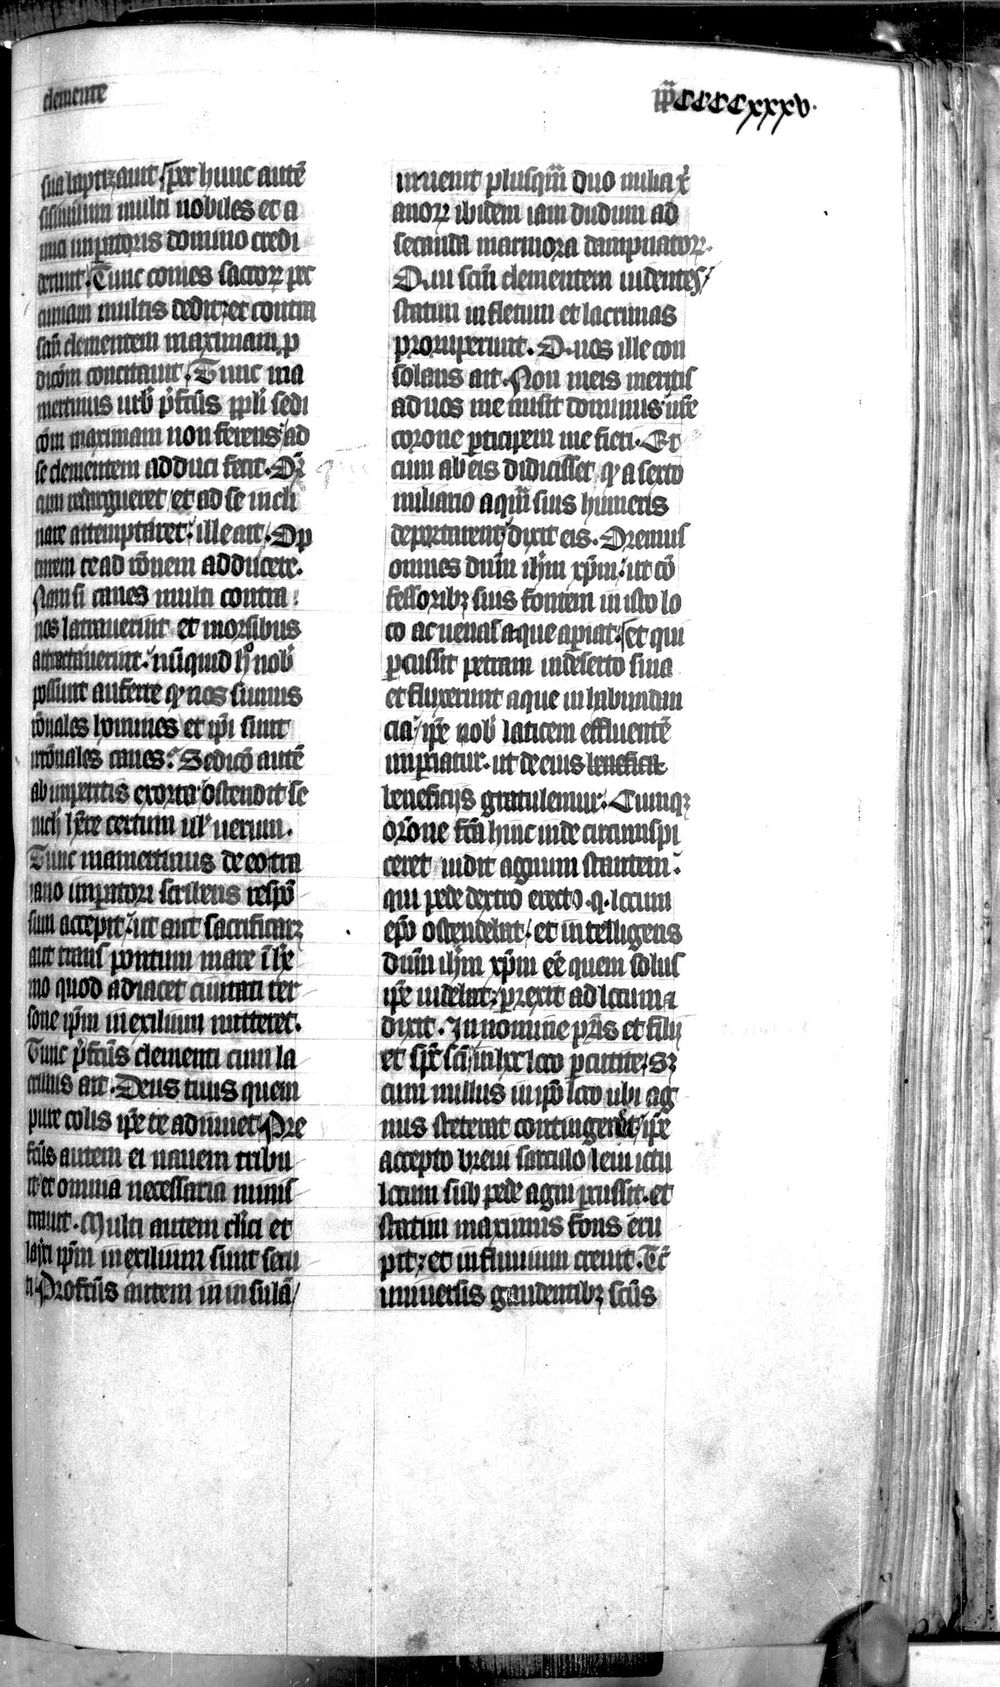 clemente
CCCCxxxv.
sua baptizauit. per hunc autē
sisinnium multi nobiles et a
mici impatoris domino credi
derunt. Tunc comes sacroꝝ pec
cuniam multis dedit et contra
scm̄ clementem maximam p
dicōm concitauit. Tunc ma
mertinus urb̄ p̄fcūs ppl̄i sedi
cōm maximam non ferens ad
se clementem adduci fecit. Qē
cum redargueret et ad se incli
nare attemptaret. ille ait. Op
tarem te ad rōnem adducere.
Nam si canes multi contra
nos latrauerint et morsibus
attractauerint. nūquid hͦ nob̄
possunt auferre qͥ nos sumus
rōnales homines et ip̄i sunt
irrōnales canes. Sedicō autē
ab imperitis exorta ostendit se
nich̄ hr̄e certum ul̄ uerum.
Tunc mamertinus de eo tra
iano impatori scribens respō
sum accepit. ut aut sacrificarꝫ
aut trans pontum mare ī he
mo quod adiacet ciuitati ter
sone ip̄m in exilium mitteret.
Tunc p̄fcūs clementi cum la
crimis ait. Deus tuus quem
pure colis ip̄e te adiuuet. Pre
fcūs autem ei nauem tribu
it et omnia necessaria minis
trauit. Multi autem clīci et
layci ip̄m in exilium sunt secu
ti. Profcūs autem in insulā
inuenit plusqm̄ duo milia xͥ
anorꝝ ibidem iam dudum ad
secanda marmora dampnatorꝝ.
Qui scm̄ clementem uidentes
statim in fletum et lacrimas
proruperunt. Quos ille con
solans ait. Non meis meritis
ad uos me misit dominus ur̄e
corone pticipem me fieri. Et
cum ab eis didicisset qͥ a sexto
miliario aqm̄ suis humeris
deportarent dixit eis. Oremus
omnes dnm̄ ihm̄ xpm̄. ut cō
fessoribꝫ suis fontem in isto lo
co ac uenas aque apiat. et qui
pcussit petram in deserto sina
et fluxerunt aque in habundan
cia. ip̄e nob̄ laticem effluentē
impciatur. ut de eius beneficiis
beneficijs gratulemur. Cumqꝫ
orōne fcā hinc inde circumspi
ceret uidit agnum stantem.
qui pede dextro erecto. q. locum
epō ostendebat. et intelligens
dnm̄ ihm̄ xpm̄ eē quem solus
ip̄e uidebat. prexit ad locum ⁊
dixit. In nomine pr̄is et filij
et sps̄ sc̄i in hoc loco pcutite. Sꝫ
cum nullus in ip̄o loco ubi ag
nus steterat contingeret ip̄e
accepto breui sarculo leui ictu
locum sub pede agni pcussit. et
statim maximus fons eru
pit. et in fluuium creuit. Tc̄
uniuersis gaudentibꝫ scūs